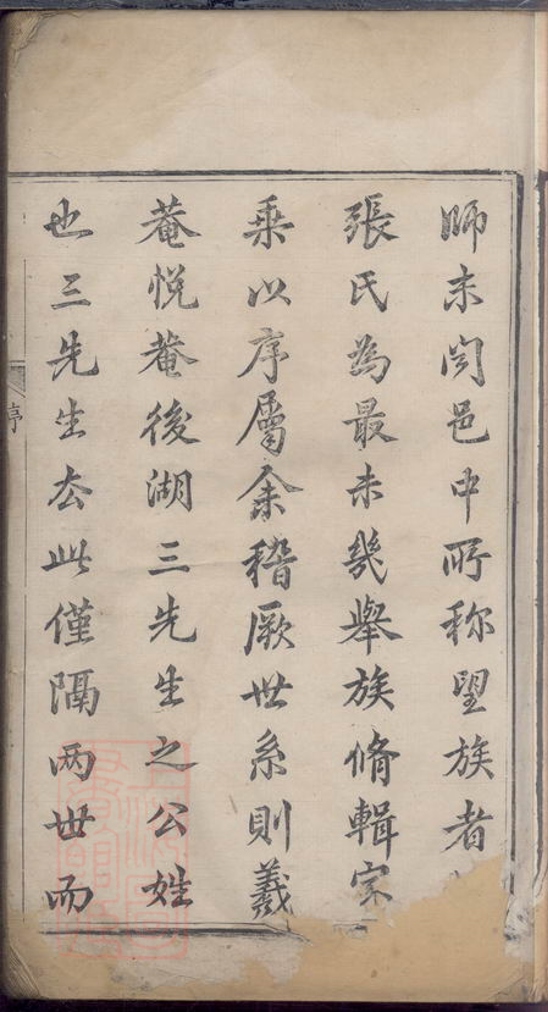 師来閱邑中所称望族者
張氏為最未幾舉族脩輯宗
乗以序屬余稽厥世系則義
菴悦菴後湖三先生之公姓
也三先生去此僅隔两世而
序